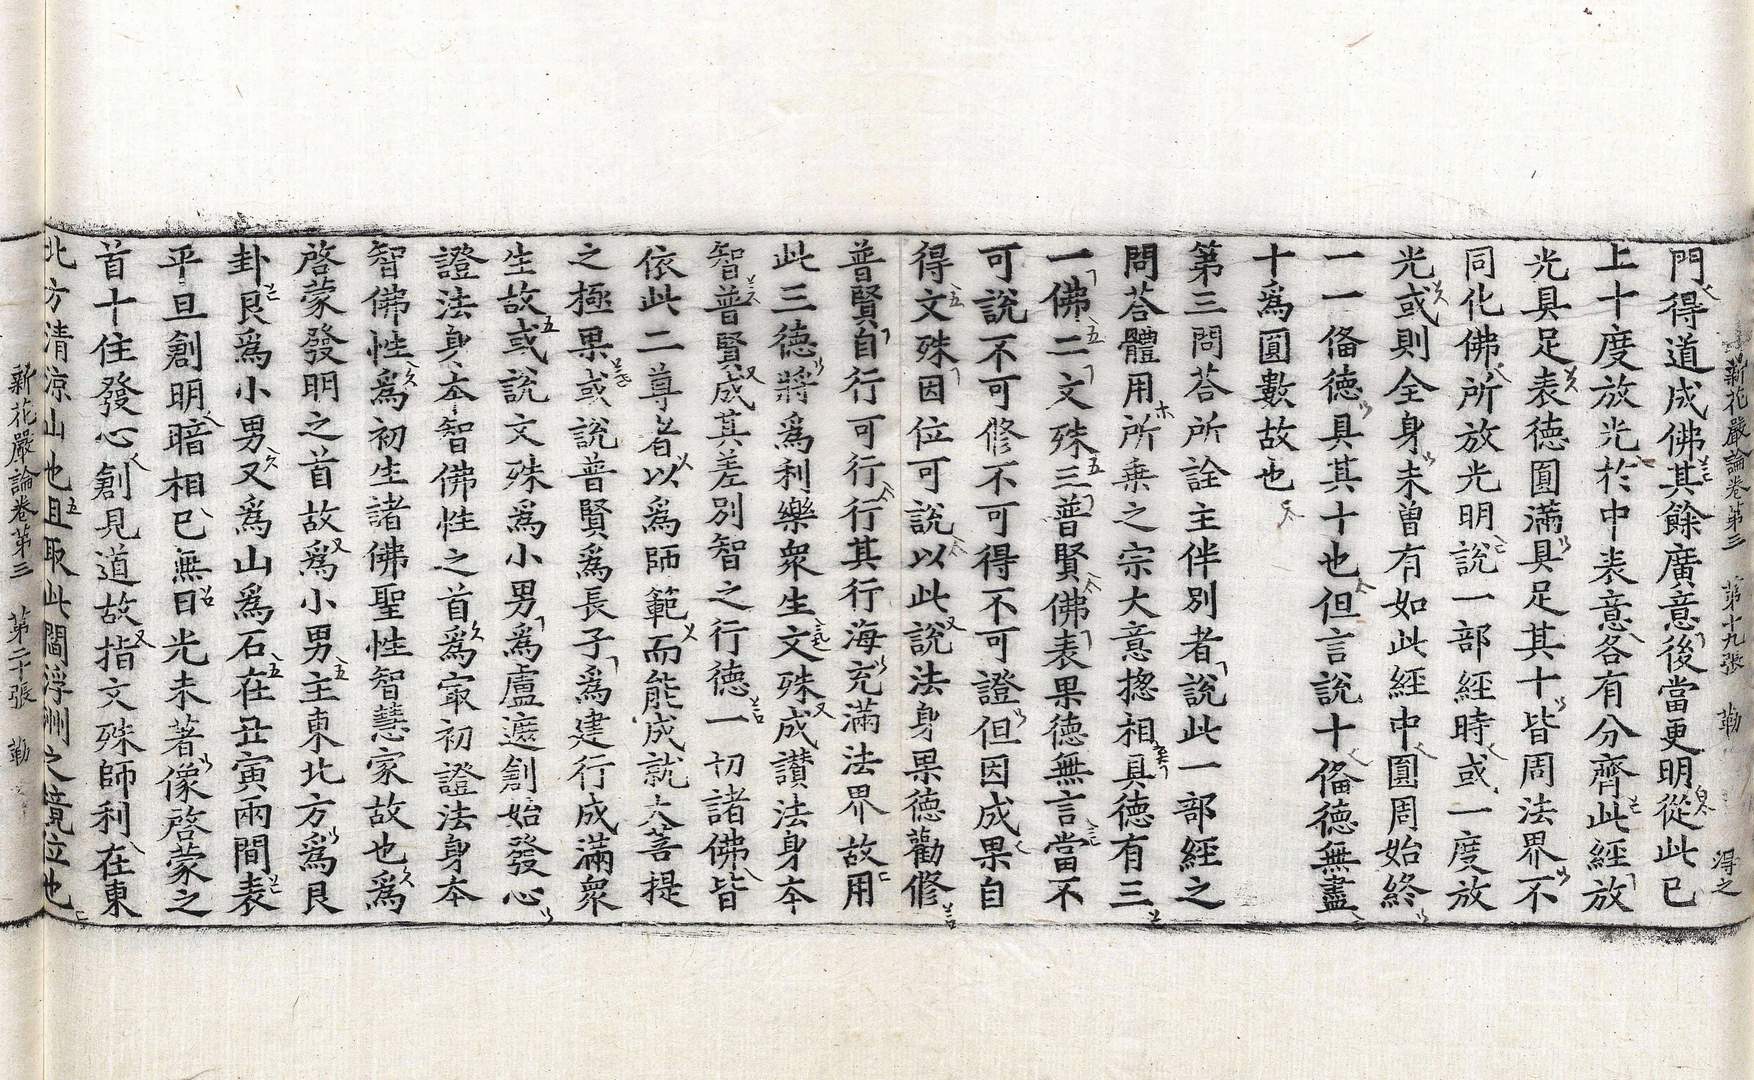 新花嚴論卷第三 第十九張 勒 得之
門得道成佛其餘廣意後當更明從此已
上十度放光於中表意各有分齊此經放
光具足表德圓滿具足其十皆周法界不
同化佛所放光明說一部經時或一度放
光或則全身未曾有如此經中圓周始終
一一俻德具其十也但言說十俻德無盡
十爲圓數故也
第三問荅所詮主伴別者說此一部經之
問荅體用所乗之宗大意揔相具德有三
一佛二文殊三普賢佛表果德無言當不
可說不可修不可得不可證但因成果自
得文殊因位可說以此說法身果德勸修
普賢自行可行行其行海充滿法界故用
此三德將爲利樂衆生文殊成讃法身本
智普賢成其差別智之行德一切諸佛皆
依此二尊者以爲師範而能成就大菩提
之極果或說普賢爲長子爲建行成滿衆
生故或說文殊爲小男爲盧遮創始發心
證法身本智佛性之首爲㝡初證法身本
智佛性爲初生諸佛聖性智慧家故也爲
啓蒙發明之首故爲小男主東北方爲艮
卦艮爲小男又爲山爲石在丑寅兩間表
平旦創明暗相已無日光未著像啓蒙之
首十住發心創見道故指文殊師利在東
北方清涼山也且取此閻浮洲之境位也
新花嚴論卷第三 第二十張 勒